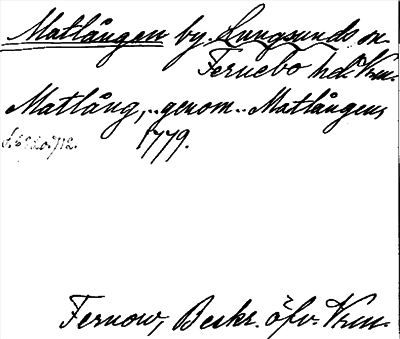 Matlången by. Lungsunds sn
Fernebo hd. Vrm.
Matlång, .. genom .. Matlångens
1779.
Fernow, Beskr. öfv. Vrm.